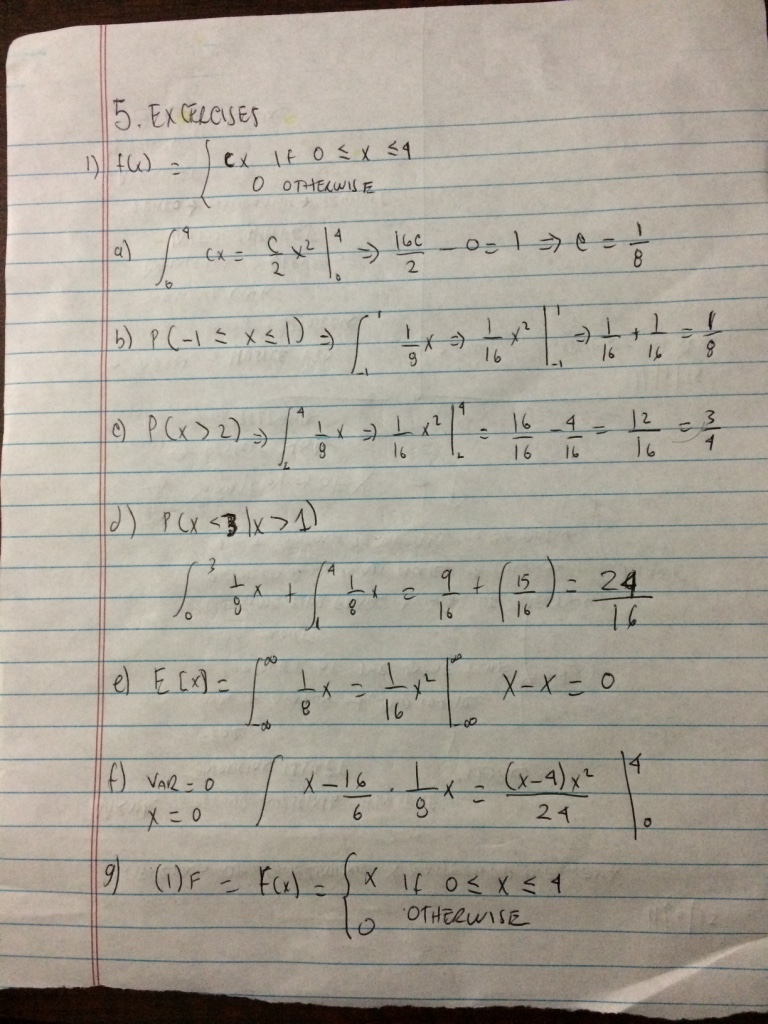 5. EXCERCISES
1) f(x) = { cx If 0 ≤ x ≤ 4
0 OTHERWISE
a) ∫_0^4 cx = c/2 x² |_0^4 ⇒ 16c/2 - 0 = 1 ⇒ c = 1/8
b) P(-1 ≤ x ≤ 1) ⇒ ∫_-1^1 1/8 x ⇒ 1/16 x² |_-1^1 ⇒ 1/16 + 1/16 = 1/8
c) P(x > 2) ⇒ ∫_2^4 1/8 x ⇒ 1/16 x² |_2^4 = 16/16 - 4/16 = 12/16 = 3/4
d) P(x < 3 | x > 1)
∫_0^3 1/8 x + ∫_1^4 1/8 x = 9/16 + (15/16) = 24/16
e) E[x] = ∫_-∞^∞ 1/8 x = 1/16 x² |_-∞^∞ x - x = 0
f) VAR = 0 ∫ x - 16/6 · 1/8 x = (x-4)x²/24 |_0^4
x = 0
g) (1)F = F(x) = { x If 0 ≤ x ≤ 4
0 OTHERWISE